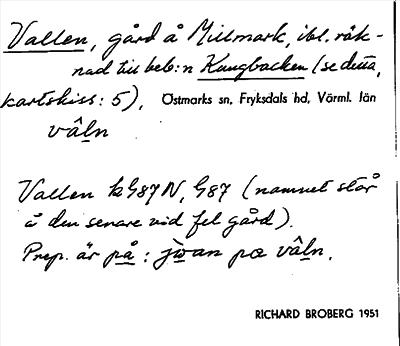 Vallen, gård å Millmark, ibl. räk-
nad till beb:n Kungbacken (se detta,
kartskiss: 5), Östmarks sn, Fryksdals hd, Värml. län
vâln
Vallen k G87 N, G87 (namnet står
å den senare vid fel gård).
Prep. är på: jwan pœ vâln.
RICHARD BROBERG 1951